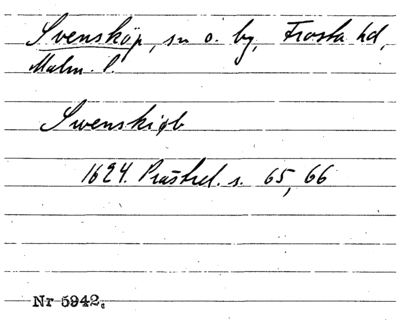 Svensköp, sn o. by, Frosta hd,
Malm. l.
Swenskiøb
1624. Prästrel. s. 65, 66
Nr 5942.